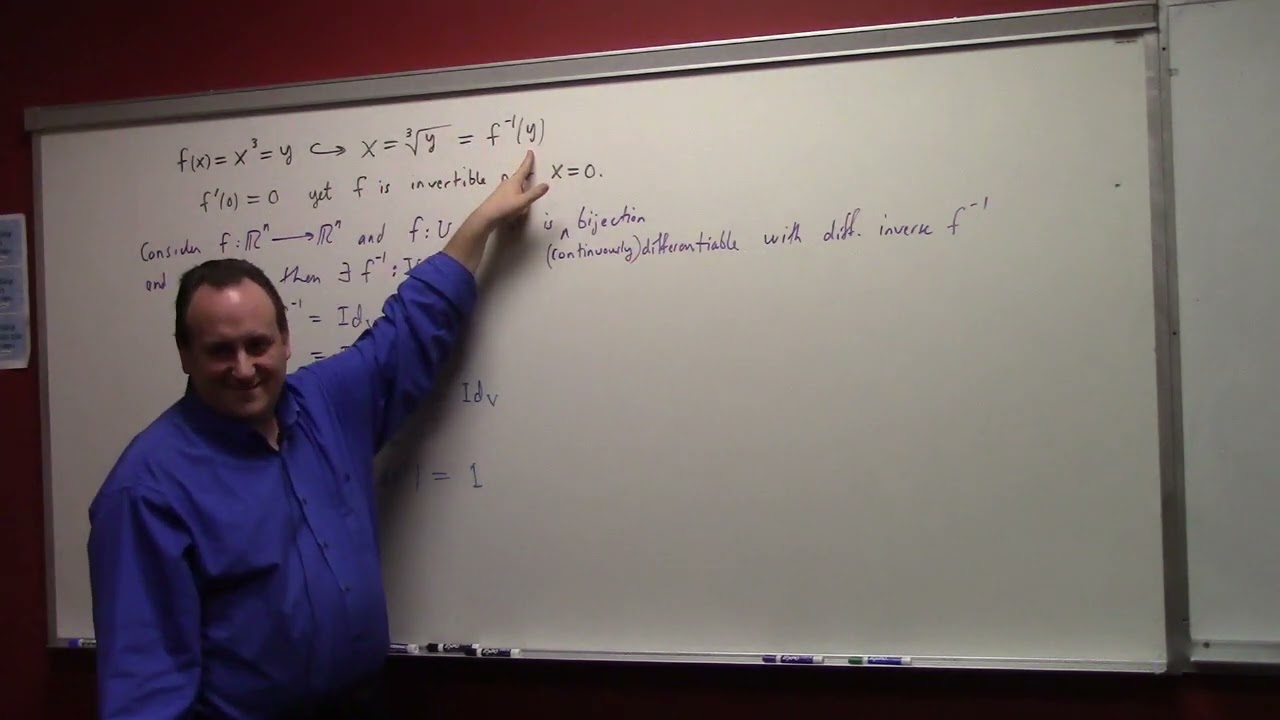 f(x) = x³ = y ↪ x = ∛y = f⁻¹(y)
f'(0) = 0 yet f is invertible x = 0.
Consider f : ℝⁿ → ℝⁿ and f : U is bijection
(continuously) differentiable with diff. inverse f⁻¹
and then ∃ f⁻¹ :
⁻¹ = Id
=
Id_V
) = 1